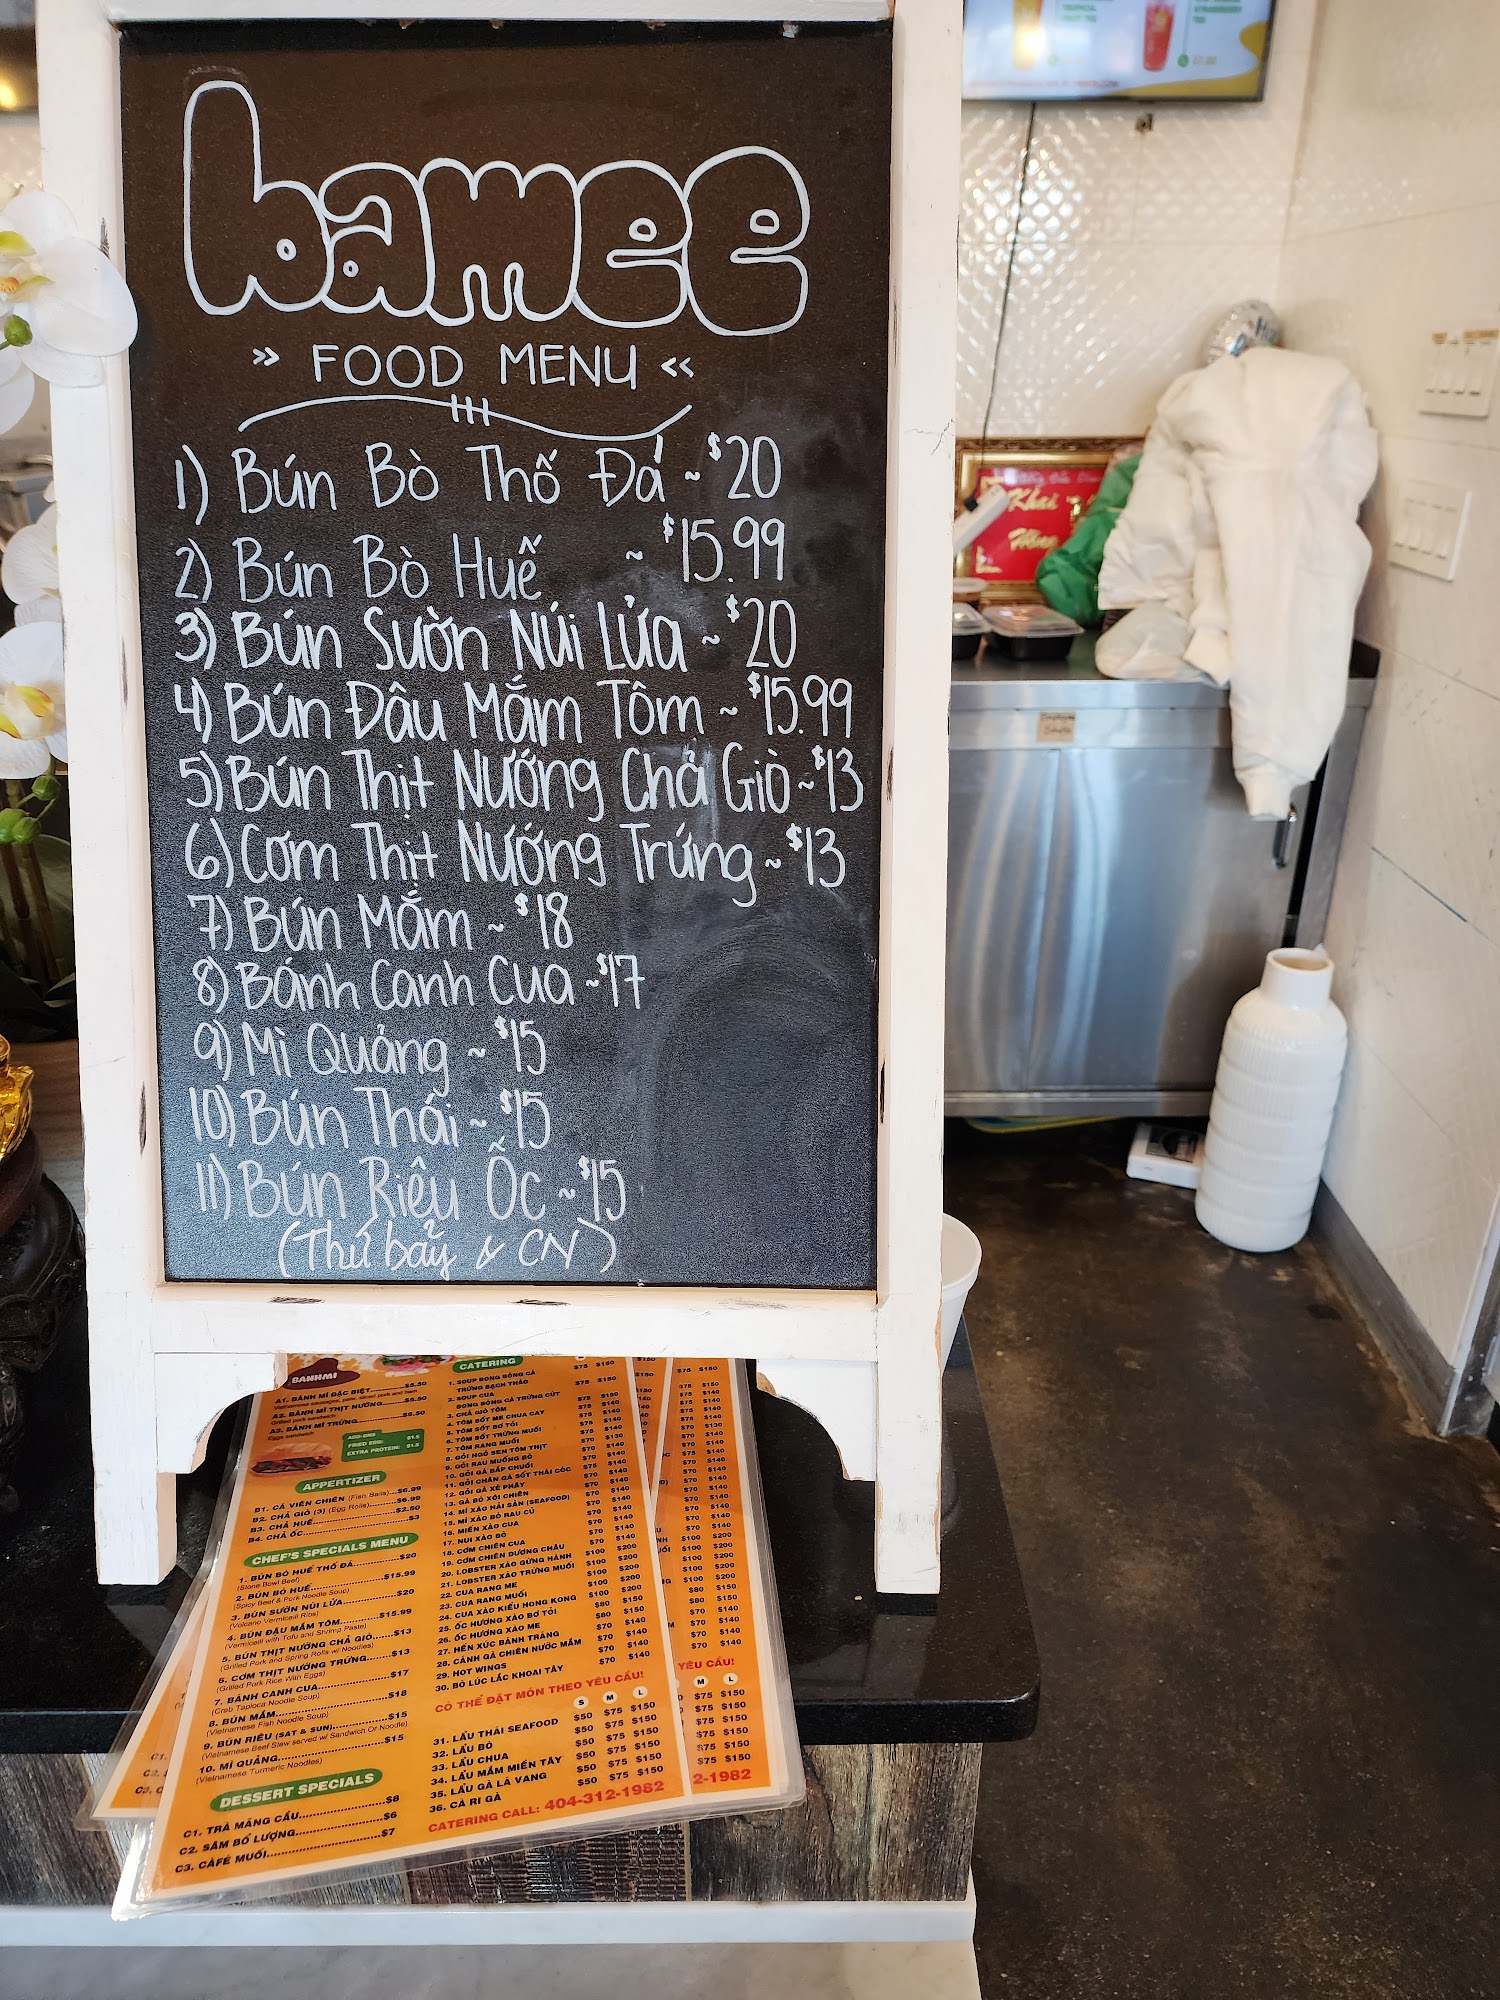 bamee
» FOOD MENU «
1) Bún Bò Thố Đá ~ $20
2) Bún Bò Huế ~ $15.99
3) Bún Sườn Núi Lửa ~ $20
4) Bún Đâu Mắm Tôm ~ $15.99
5) Bún Thịt Nướng Chả Giò ~ $13
6) Cơm Thịt Nướng Trứng ~ $13
7) Bún Mắm ~ $18
8) Bánh Canh Cua ~ $17
9) Mì Quảng ~ $15
10) Bún Thái ~ $15
11) Bún Riêu Ốc ~ $15
(Thứ bảy & CN)
BANHMI
A1. BÁNH MÌ ĐẶC BIỆT..........$5.50
A2. BÁNH MÌ THỊT NƯỚNG..........$5.50
Grilled pork sandwich
A3. BÁNH MÌ TRỨNG..........$5.50
Eggs sandwich
ADD-ONS
FRIED EGG: $1.5
EXTRA PROTEIN: $1.5
APPERTIZER
B1. CÁ VIÊN CHIÊN (Fish Balls)...$6.99
B2. CHẢ GIÒ (3) (Egg Rolls)..........$6.99
B3. CHẢ HUẾ..........$2.50
B4. CHẢ ỐC..........$3
CHEF'S SPECIALS MENU
1. BÚN BÒ HUẾ THỐ ĐÁ..........$20
(Stone Bowl Beef)
2. BÚN BÒ HUẾ..........$15.99
(Spicy Beef & Pork Noodle Soup)
3. BÚN SƯỜN NÚI LỬA..........$20
(Volcano Vermicelli Ribs)
4. BÚN ĐẬU MẮM TÔM..........$15.99
(Vermicelli with Tofu and Shrimp Paste)
5. BÚN THỊT NƯỚNG CHẢ GIÒ..........$13
(Grilled Pork and Spring Rolls w/ Noodles)
6. CƠM THỊT NƯỚNG TRỨNG..........$13
(Grilled Pork Rice With Eggs)
7. BÁNH CANH CUA..........$17
(Crab Tapioca Noodle Soup)
8. BÚN MẮM..........$18
(Vietnamese Fish Noodle Soup)
9. BÚN RIÊU (SAT & SUN)..........$15
10. MÌ QUẢNG..........$15
(Vietnamese Turmeric Noodles)
DESSERT SPECIALS
C1. TRÀ MÃNG CẦU..........$8
C2. SÂM BỔ LƯỢNG..........$6
C3. CÀFÊ MUỐI..........$7
CATERING
1. SOUP BONG BÓNG CÁ
TRỨNG BẠCH THẢO
2. SOUP CUA
BONG BÓNG CÁ TRỨNG CÚT
3. CHẢ GIÒ TÔM
4. TÔM SỐT ME CHUA CAY
5. TÔM SỐT BƠ TỎI
6. TÔM SỐT TRỨNG MUỐI
7. TÔM RANG MUỐI
8. GỎI NGÓ SEN TÔM THỊT
9. GỎI RAU MUỐNG BÒ
10. GỎI GÀ BẮP CHUỐI
11. GỎI CHÂN GÀ SỐT THÁI CÓC
12. GỎI GÀ XÉ PHAY
13. GÀ BÓ XÔI CHIÊN
14. MÌ XÀO HẢI SẢN (SEAFOOD)
15. MÌ XÀO BÒ RAU CỦ
16. MIẾN XÀO CUA
17. NUI XÀO BÒ
18. CƠM CHIÊN CUA
19. CƠM CHIÊN DƯƠNG CHÂU
20. LOBSTER XÀO GỪNG HÀNH
21. LOBSTER XÀO TRỨNG MUỐI
22. CUA RANG ME
23. CUA RANG MUỐI
24. CUA XÀO KIỂU HONG KONG
25. ỐC HƯƠNG XÀO BƠ TỎI
26. ỐC HƯƠNG XÀO ME
27. HẾN XÚC BÁNH TRÁNG
28. CÁNH GÀ CHIÊN NƯỚC MẮM
29. HOT WINGS
30. BÒ LÚC LẮC KHOAI TÂY
CÓ THỂ ĐẶT MÓN THEO YÊU CẦU!
S M L
31. LẨU THÁI SEAFOOD $50 $75 $150
32. LẨU BÒ $50 $75 $150
33. LẨU CHUA $50 $75 $150
34. LẨU MẮM MIỀN TÂY $50 $75 $150
35. LẨU GÀ LÁ VANG $50 $75 $150
36. CÀ RI GÀ $50 $75 $150
CATERING CALL: 404-312-1982